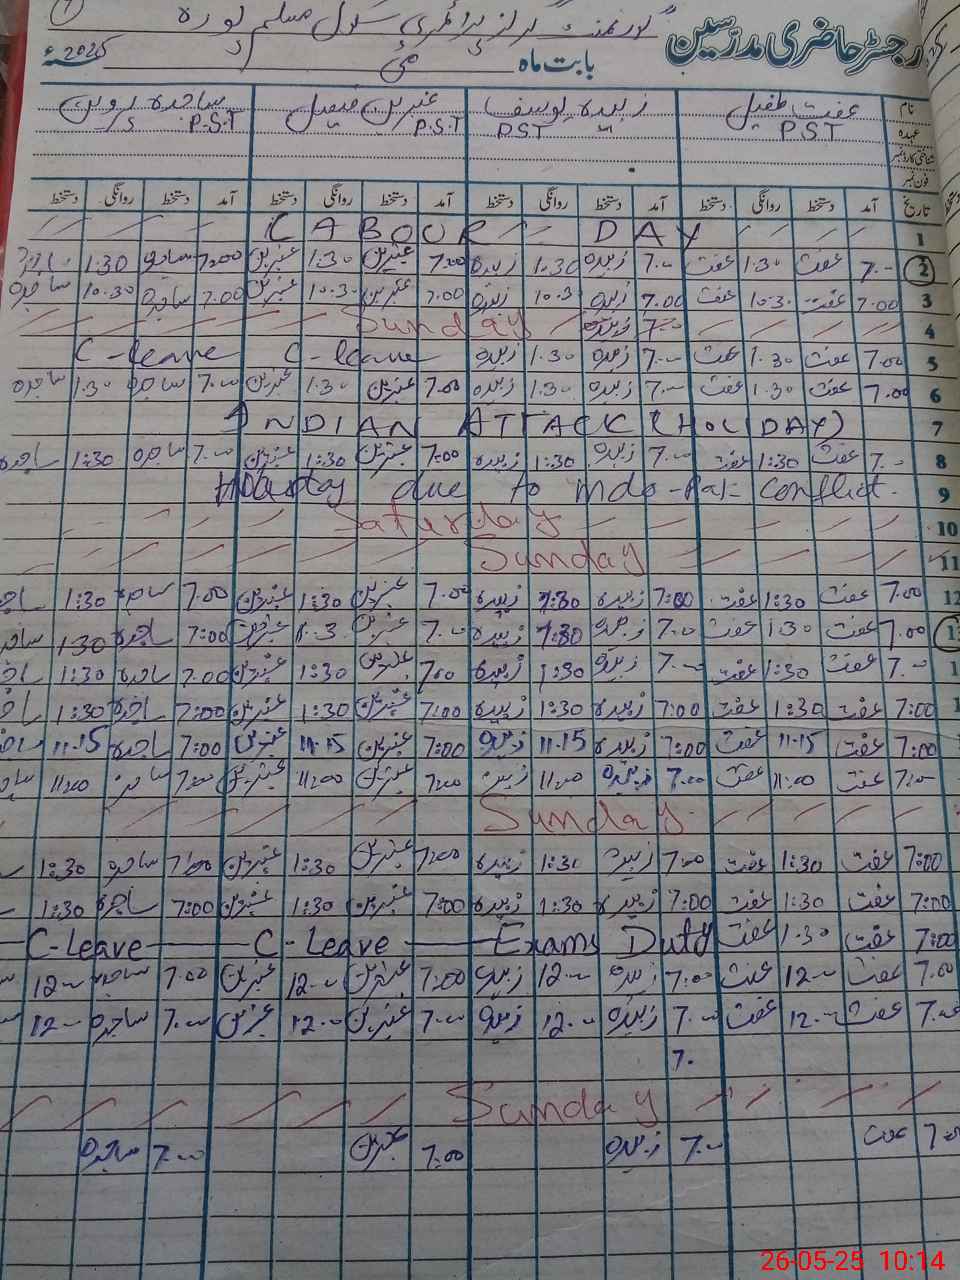 گورنمنٹ گرلز پرائمری سکول مسلم پورہ
رجسٹر حاضری مدرسین
بابت ماہ مئی 2025ء
نام عفت طفیل زبیدہ یوسف عنبرین ساجدہ پروین
عہدہ P.S.T PST P.S.T P.S.T
شناختی کارڈ نمبر
فون نمبر
تاریخ آمد دستخط روانگی دستخط آمد دستخط روانگی دستخط آمد دستخط روانگی دستخط آمد دستخط روانگی دستخط
1 LABOUR DAY
2 7.00 عفت 1.30 عفت 7.00 زبیدہ 1.30 زبیدہ 7.00 عنبرین 1.30 عنبرین 7.00 ساجدہ 1.30 ساجدہ
3 7.00 عفت 10.30 عفت 7.00 زبیدہ 10.30 زبیدہ 7.00 عنبرین 10.30 عنبرین 7.00 ساجدہ 10.30 ساجدہ
4 Sunday
5 7.00 عفت 1.30 عفت 7.00 زبیدہ 1.30 زبیدہ C-leave C-leave
6 7.00 عفت 1.30 عفت 7.00 زبیدہ 1.30 زبیدہ 7.00 عنبرین 1.30 عنبرین 7.00 ساجدہ 1.30 ساجدہ
7 INDIAN ATTACK (HOLIDAY)
8 7.00 عفت 1:30 عفت 7.00 زبیدہ 1:30 زبیدہ 7:00 عنبرین 1:30 عنبرین 7.00 ساجدہ 1:30 ساجدہ
9 Holiday due to indo-Pak conflict.
10 Saturday
11 Sunday
12 7.00 عفت 1:30 عفت 7:00 زبیدہ 1:30 زبیدہ 7.00 عنبرین 1:30 عنبرین 7.00 ساجدہ 1:30
7.00 عفت 1.30 عفت 7.00 زبیدہ 1:30 زبیدہ 7.00 عنبرین عنبرین 7:00 ساجدہ 1:30
7.00 عفت 1:30 عفت 7.00 زبیدہ 1:30 زبیدہ 7.00 عنبرین 1:30 عنبرین 7.00 ساجدہ 1:30
7:00 عفت 1:30 عفت 7:00 زبیدہ 1:30 زبیدہ 7:00 عنبرین 1:30 عنبرین 7:00 ساجدہ 1:30
7:00 عفت 11.15 عفت 7:00 زبیدہ 11.15 زبیدہ 7:00 عنبرین 11.15 عنبرین 7:00 ساجدہ 11.15
7:00 عفت 11:00 عفت 7.00 زبیدہ 11:00 زبیدہ 7:00 عنبرین 11:00 عنبرین 7:00 ساجدہ 11:00
Sunday
7:00 عفت 1:30 عفت 7.00 زبیدہ 1:30 زبیدہ 7:00 عنبرین 1:30 عنبرین 7:00 ساجدہ 1:30
7:00 عفت 1:30 عفت 7:00 زبیدہ 1:30 زبیدہ 7:00 عنبرین 1:30 عنبرین 7:00 ساجدہ 1:30
7:00 عفت 1.30 عفت Exams Duty C-Leave C-Leave
7.00 عفت 12.00 عفت 7.00 زبیدہ 12.00 زبیدہ 7.00 عنبرین 12.00 عنبرین 7.00 ساجدہ 12.00
7.00 عفت 12.00 عفت 7.00 زبیدہ 12.00 زبیدہ 7.00 عنبرین 12.00 عنبرین 7.00 ساجدہ 12.00
7.
Sunday
7.00 عفت 7.00 زبیدہ 7.00 عنبرین 7.00 ساجدہ
26-05-25 10:14